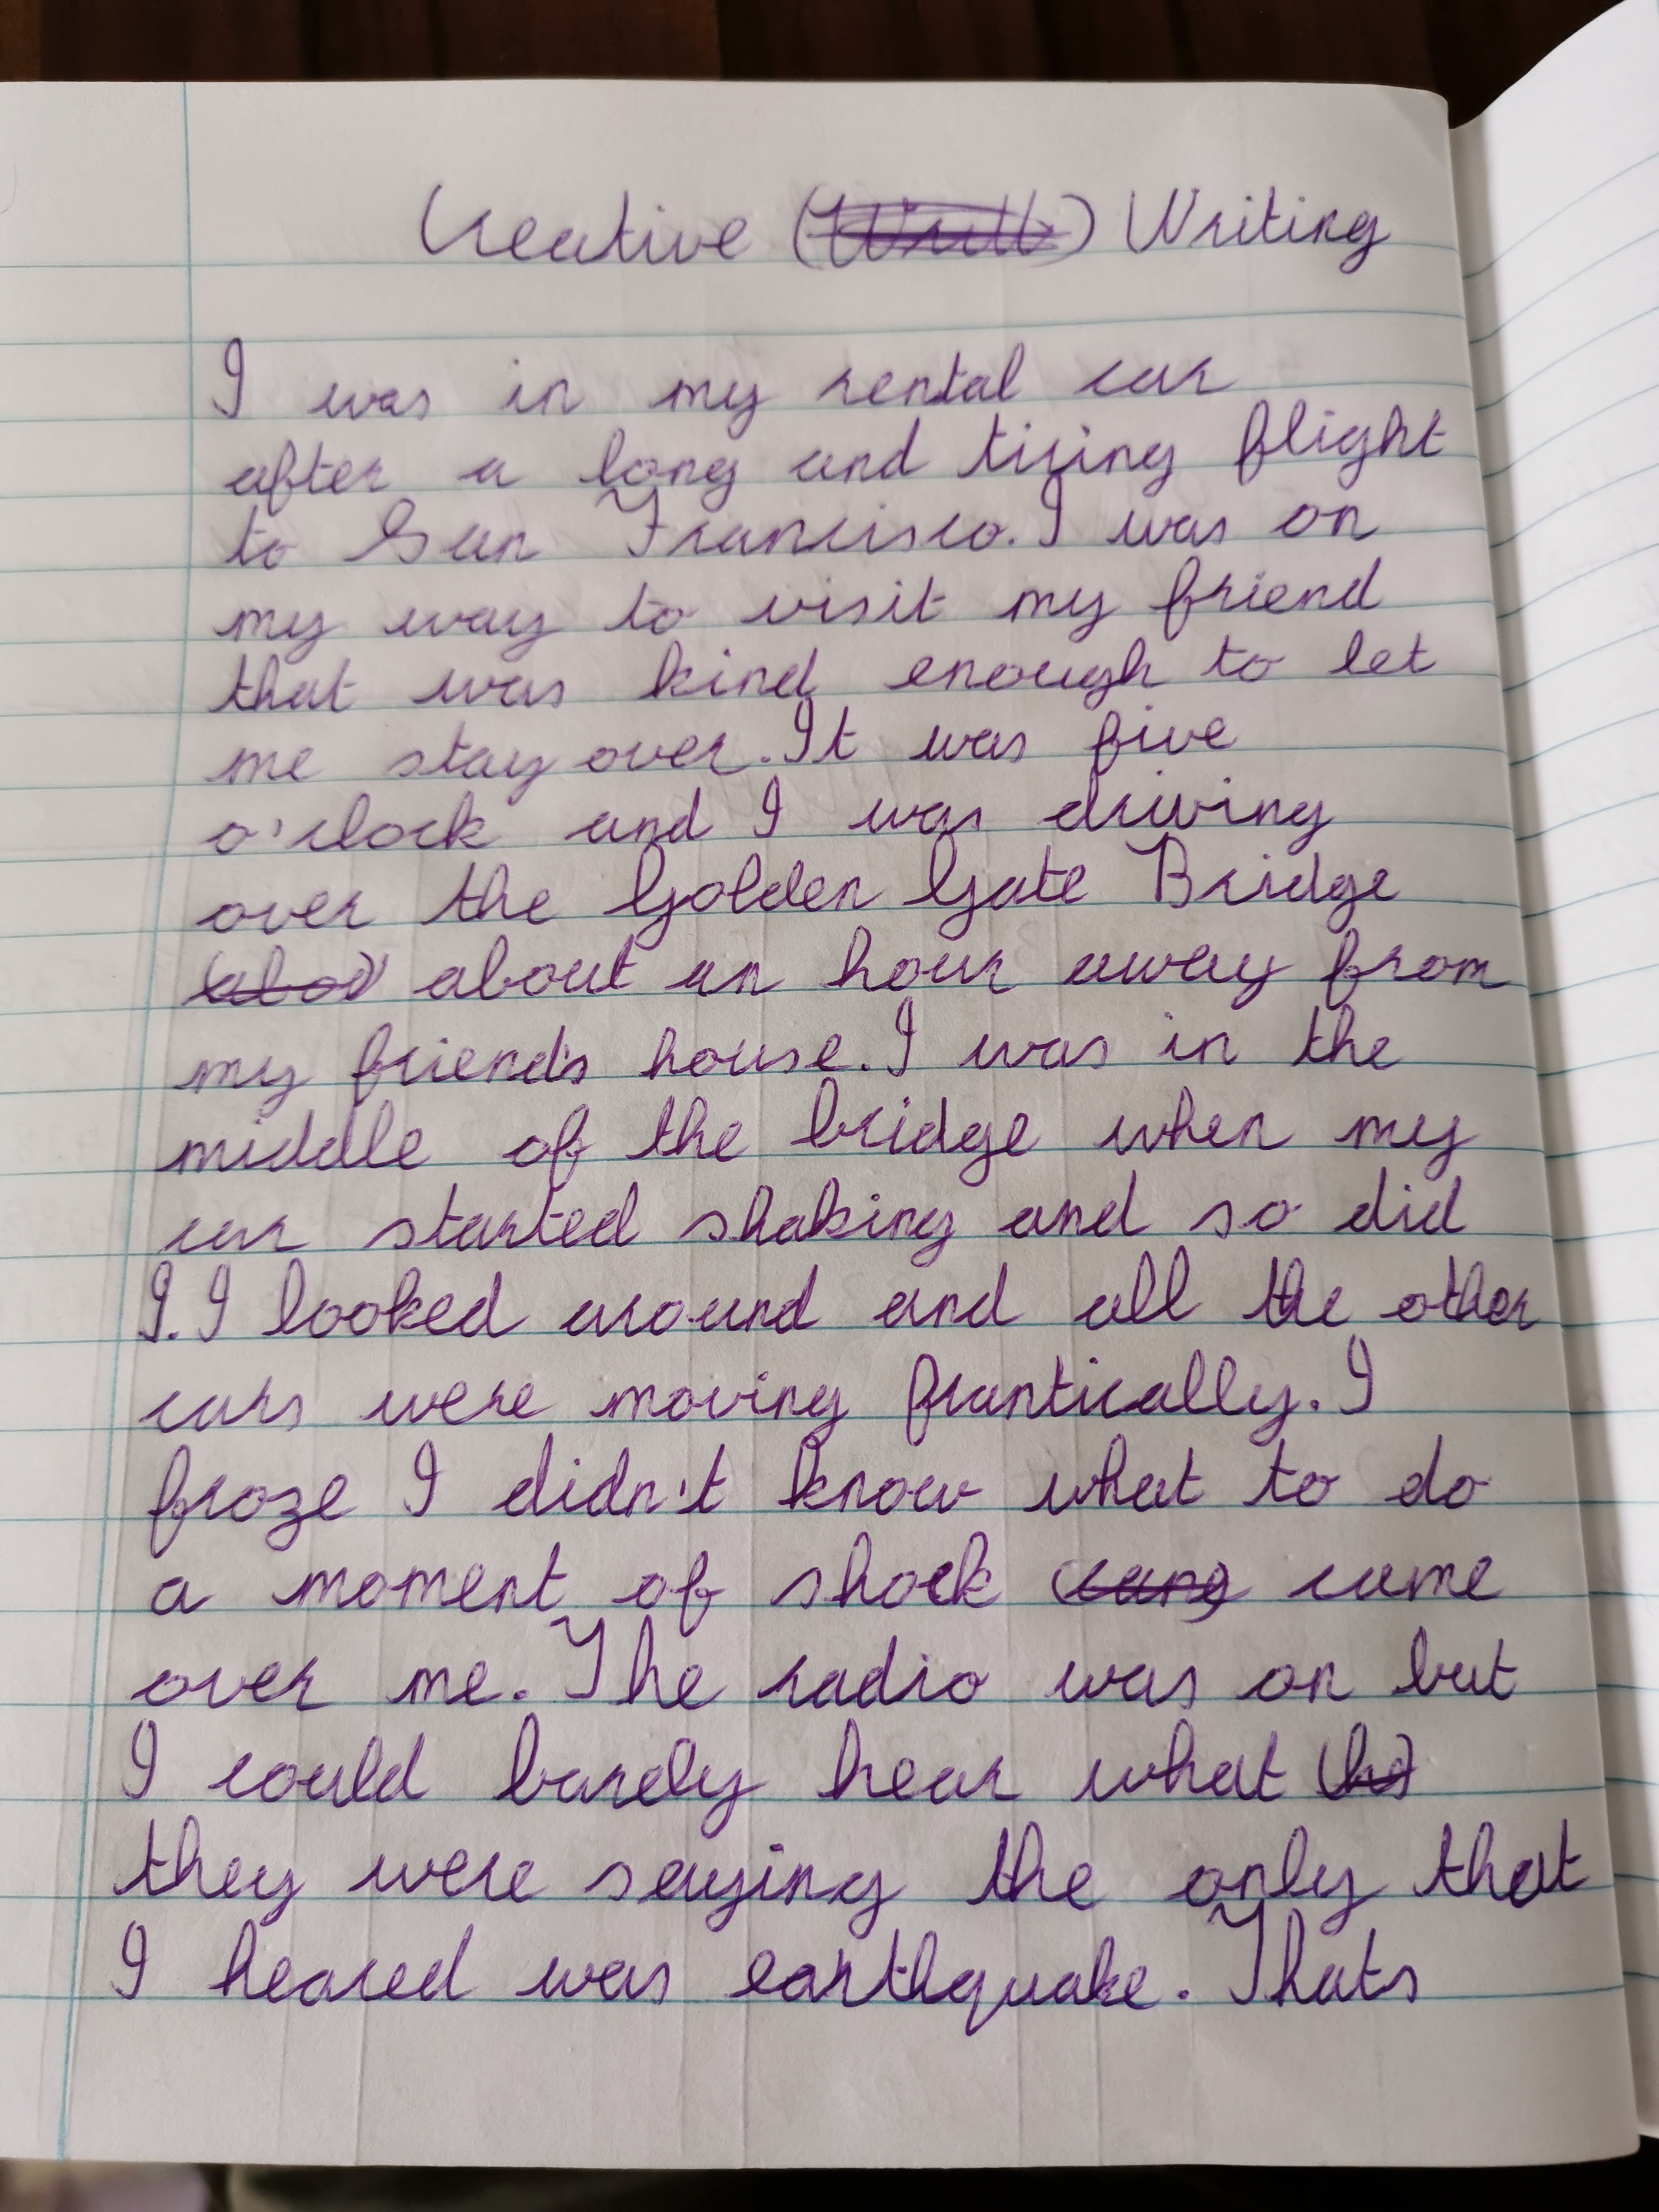 Creative Writing
I was in my rental car
after a long and tiring flight
to San Francisco. I was on
my way to visit my friend
that was kind enough to let
me stay over. It was five
o'clock and I was driving
over the Golden Gate Bridge
(abou) about an hour away from
my friend's house. I was in the
middle of the bridge when my
car started shaking and so did
I. I looked around and all the other
cars were moving frantically. I
froze I didn't know what to do
a moment of shock came
over me. The radio was on but
I could barely hear what
they were saying the only that
I heared was earthquake. Thats